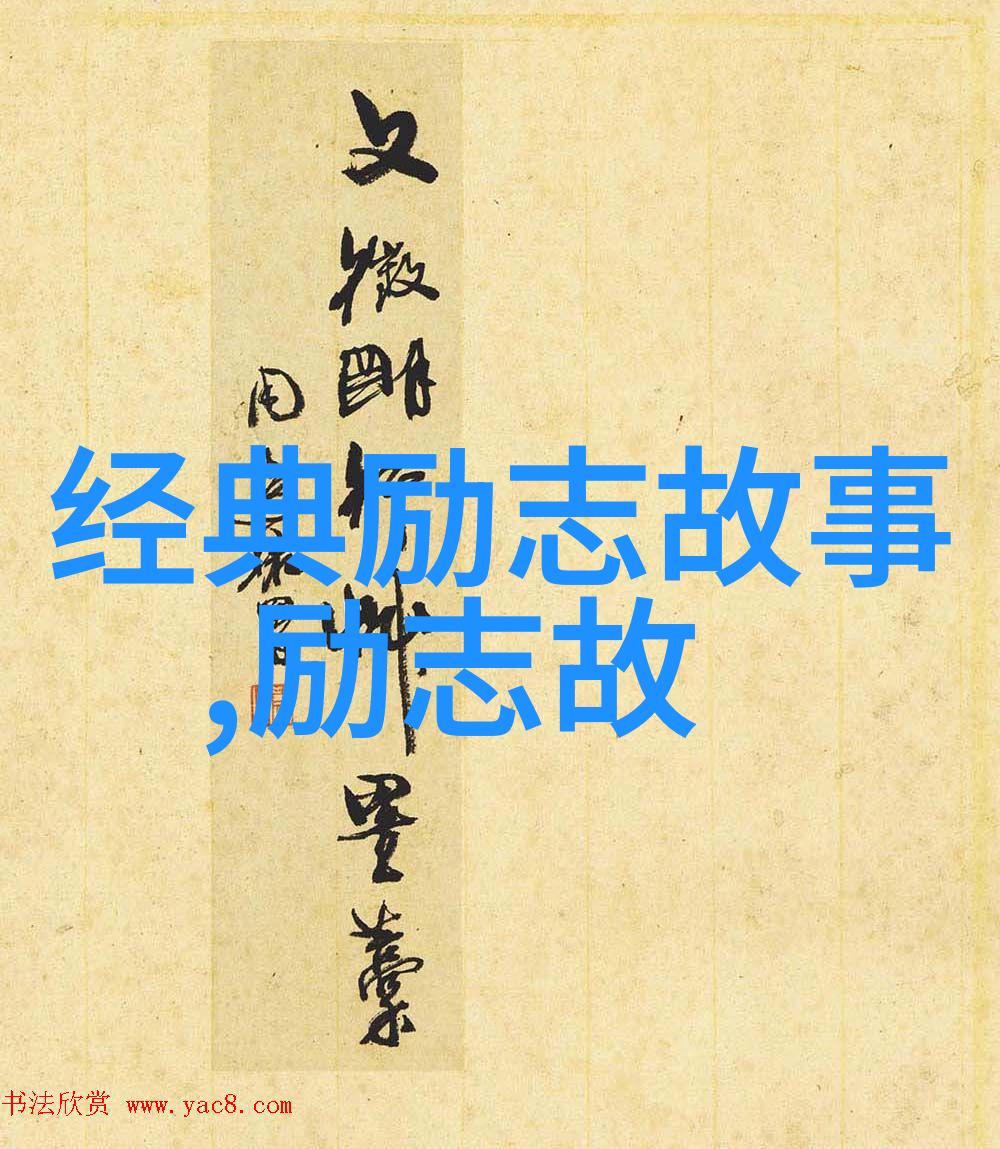 文徵明行艸墨藁
经典励志故事
,励志故
书法欣赏 www.yac8.com